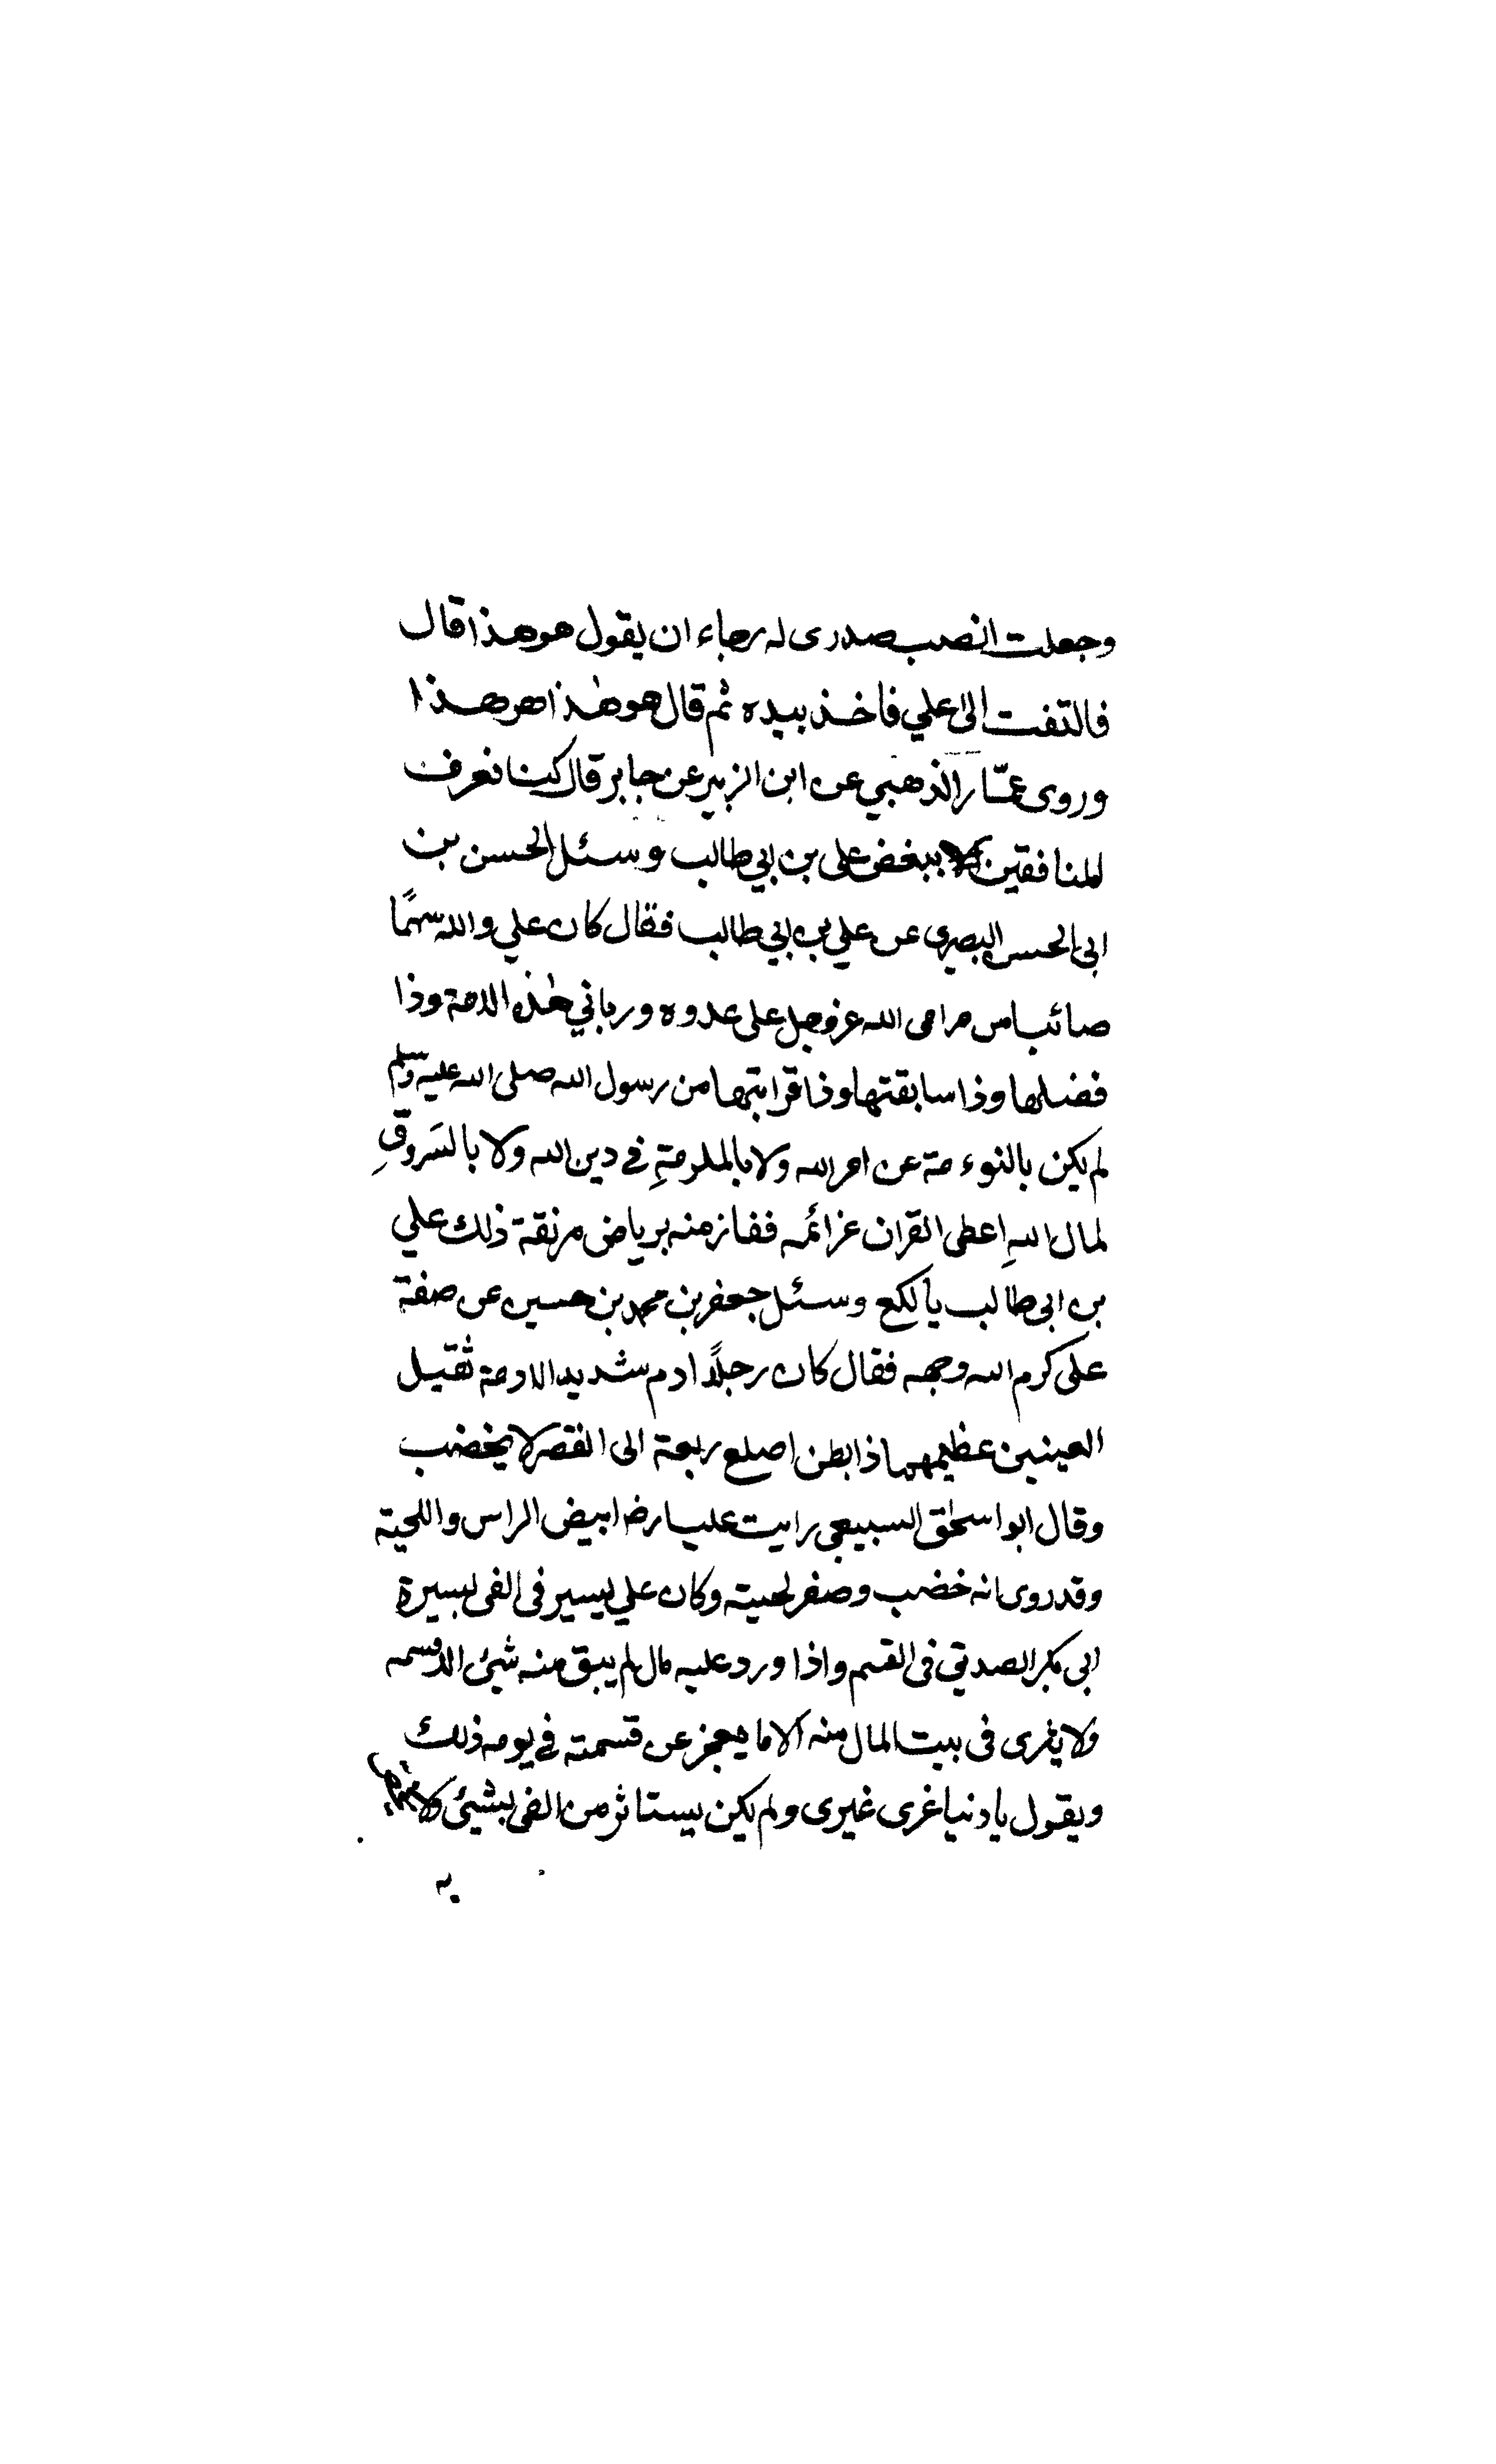 وجعلت انصب صدرى له رجاء ان يقول هو هذا قال
فالتفت الى علي فاخذ بيده ثم قال هو هذا هو هذا
وروى عمّار الذهبي عن ابن الزبير عن جابر قال كنا نعرف
المنافقين الا ببغض على بن ابي طالب وسئل الحسن بن
ابى الحسن البصرى عن علي بن ابي طالب فقال كان علي والله سهمًا
صائبا من مرامى الله عز وجل على عدوه ورباني هذه الامة وذا
فضلها وذا سابقتها وذا قرابتها من رسول الله صلى الله عليه وسلم
لم يكن بالنوءمة عن امر الله ولا بالملومةِ في دين الله ولا بالسَروقِ
لمال اللهِ اعطى القران عزائمه ففاز منه برياض مونقة ذلك علي
بن ابى طالب يا لكع وسئل جعفر بن محمد بن حسين عن صفة
على كرم الله وجهه فقال كان رجلًا ادم شديد الادمة ثقيل
العينين عظيمهما ذا بطن اصلع ربعة الى القصر لا يخضب
وقال ابو اسحٰق السبيعى رايت عليا رضه ابيض الراس واللحية
وقد روى انه خضب وصفر لحيته وكان علي يسير فى الفى بسيرة
ابى بكر الصديق فى القسم واذا ورد عليه مال لم يبق منه شيئ الا قسمه
ولا يترى فى بيت المال منه الا ما يعجز عن قسمته في يومه ذلك
ويقول يا دنيا غرى غيرى ولم يكن يستاثر من الفى بشيئ ولا